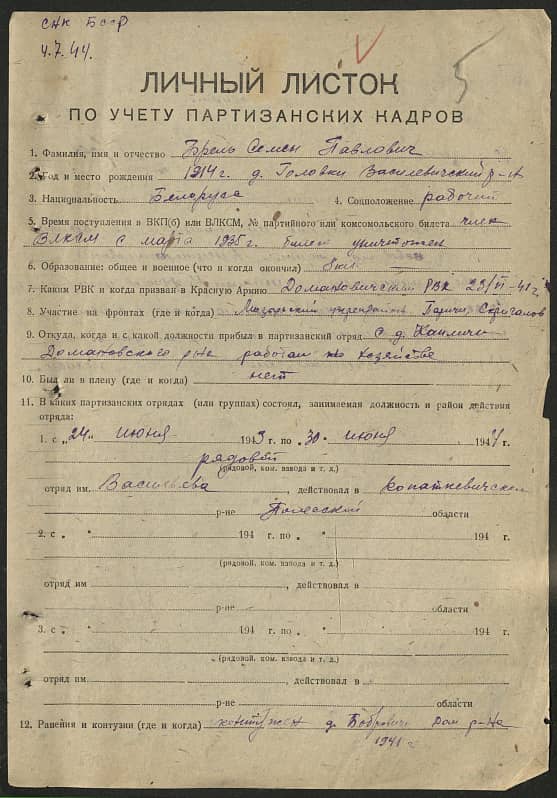 СНК БССР
4.7.44.
5
ЛИЧНЫЙ ЛИСТОК
ПО УЧЕТУ ПАРТИЗАНСКИХ КАДРОВ
1. Фамилия, имя и отчество Брель Семен Павлович
2. Год и место рождения 1914 г. д. Головки Василевичский р-н
3. Национальность Белорусс 4. Соцположение рабочий
5. Время поступления в ВКП(б) или ВЛКСМ, № партийного или комсомольского билета член
ВЛКСМ с марта 1935 г. билет уничтожен
6. Образование: общее и военное (что и когда окончил)
7. Каким РВК и когда призван в Красную Армию Домановичский РВК 23/VI-41 г
8. Участие на фронтах (где и когда) Мозырский Паричи,
9. Откуда, когда и с какой должности прибыл в партизанский отряд с д.
Домановского р-на работал по хозяйстве
10. Был ли в плену (где и когда) нет
11. В каких партизанских отрядах (или группах) состоял, занимаемая должность и район действия
отряда:
1. с „24" июня 1943 г. по „30" июня 1944 г.
рядовой
(рядовой, ком. взвода и т. д.)
отряд им. Васильева, действовал в Копаткевичском
р-не Полесской области
2. с „ " 194 г. по „ " 194 г.
(рядовой, ком. взвода и т. д.)
отряд им. , действовал в
р-не области
3. с „ " 194 г. по „ " 194 г.
(рядовой, ком. взвода и т. д.)
отряд им. , действовал в
р-не области
12. Ранения и контузии (где и когда) контужен д. Бобровичи Дом р-на
1941 г.